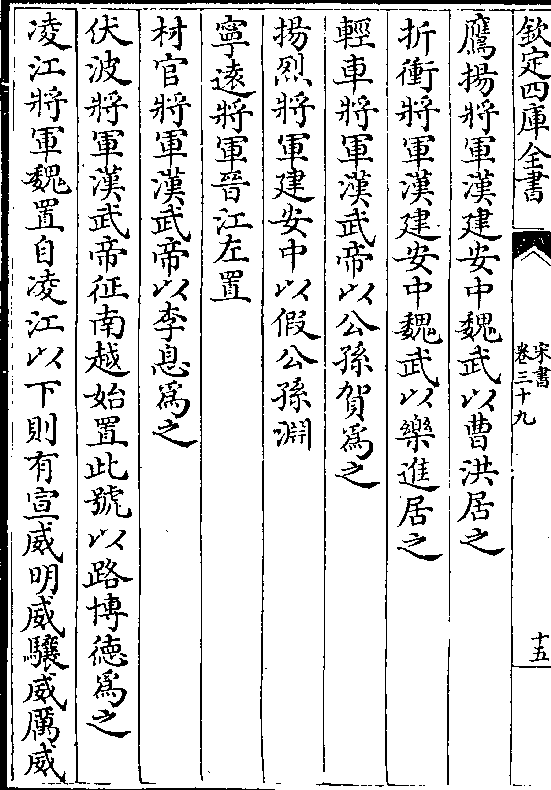 欽定四庫全書
宋書
卷三十九
十五
鷹揚將軍漢建安中魏武以曹洪居之
折衝將軍漢建安中魏武以樂進居之
輕車將軍漢武帝以公孫賀爲之
揚烈將軍建安中以假公孫淵
寧遠將軍晉江左置
材官將軍漢武帝以李息爲之
伏波將軍漢武帝征南越始置此號以路博德爲之
凌江將軍魏置自凌江以下則有宣威明威驤威厲威